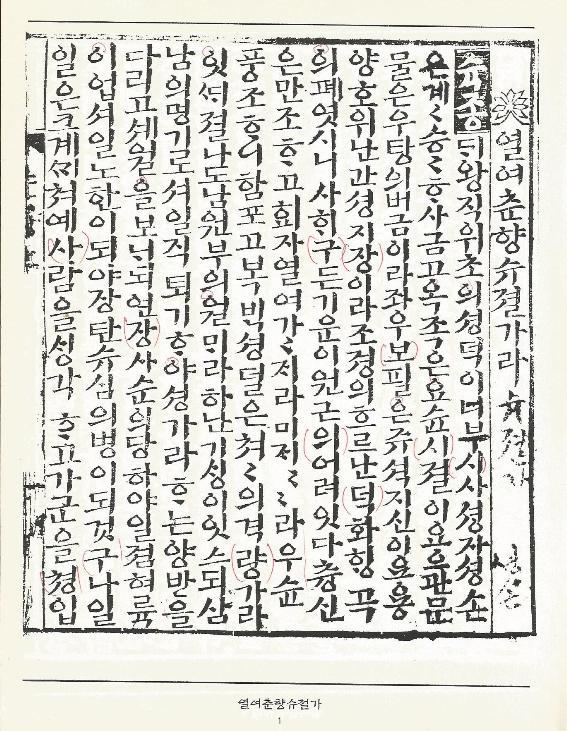 열여춘향슈졀가라
슉종ᄃᆡ왕직위초의셩덕이너부시사셩자셩손
은계〻승〻ᄒᆞ사금고옥족은요슌시졀이요으관문
물은우탕의버금이라좌우보필은쥬셕지신이요용
양호위난간셩지장이라조졍의흐르난덕화ᄒᆡᆼ곡
의폐엿시니사ᄒᆡ구든기운이원근의어려잇다츙신
은만조ᄒᆞ고회자열여가〻ᄌᆡ라미ᄌᆡ〻〻라우슌
풍조ᄒᆞ니함포고복ᄇᆡᆨ셩덜은쳐〻의격량가라
잇ᄯᆡ졀나도남원부의월ᄆᆡ라하난기ᄉᆡᆼ이잇스되삼
남의명기로셔일직퇴기ᄒᆞ야셩가라ᄒᆞ는양반을
다리고셰월을보ᄂᆡ되연장사순의당하야일졈혀륙
이업셔일노한이되야장탄슈심의병이되것구나일
일은크계ᄭᆡ쳐예사람을ᄉᆡᆼ각ᄒᆞ고가군을쳥입
열여춘향슈절가
1